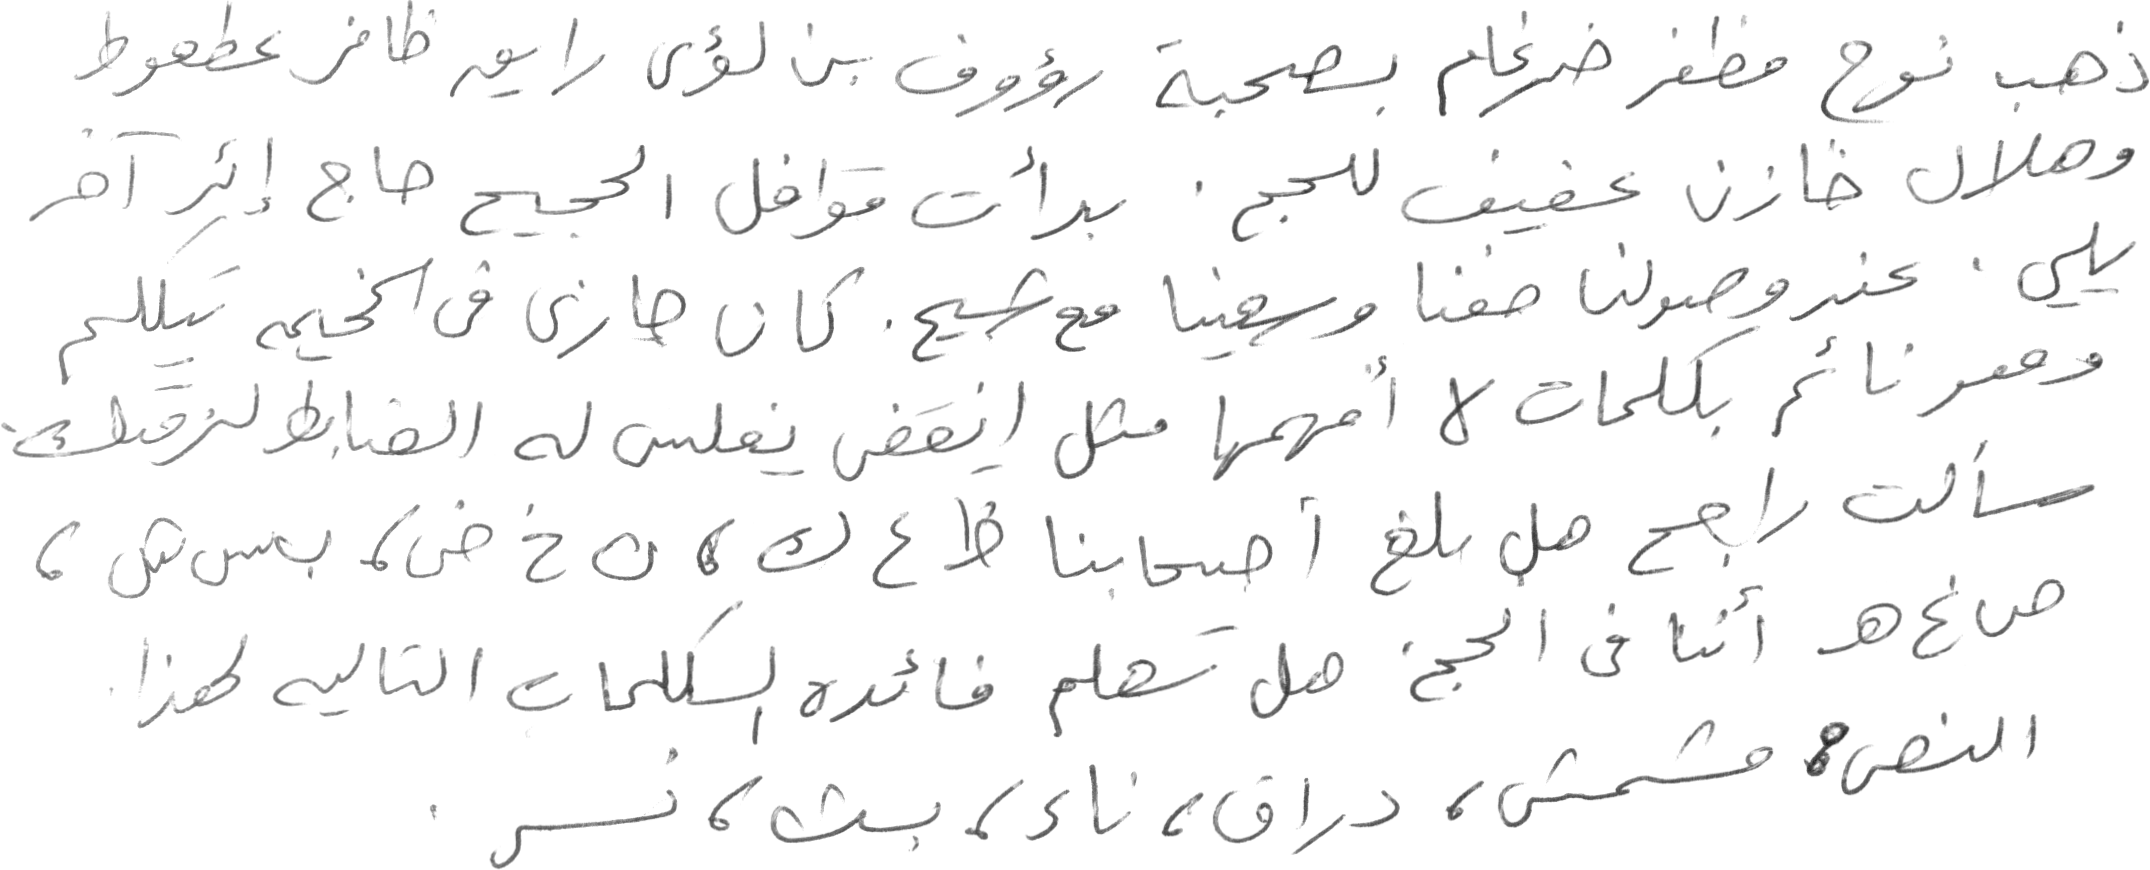 ذهب نوح مظفر ضرغام بصحبة رؤوف بن لؤى رايق ظافر عطعوط
وهلال خازن عفيف للحج . بدأت قوافل الحجيح حاج إثر آخر
يلي . عند وصولنا ضفنا وسهينا مع شجيع . كان جارى فى الخيمه يتكلم
وهو نائم بكلمات لا أفهمها مثل انقض يفلس له الضابط لنزقتك .
سألت راجح هل بلغ أصحابنا ظ ع ك ، ن خ ض ، ب س ش ،
ص غ هـ أننا فى الحج . هل تعلم فائده الكلمات التاليه لهذا
النص : مشمش ، دراق ، ناء ، بث ، نسر .